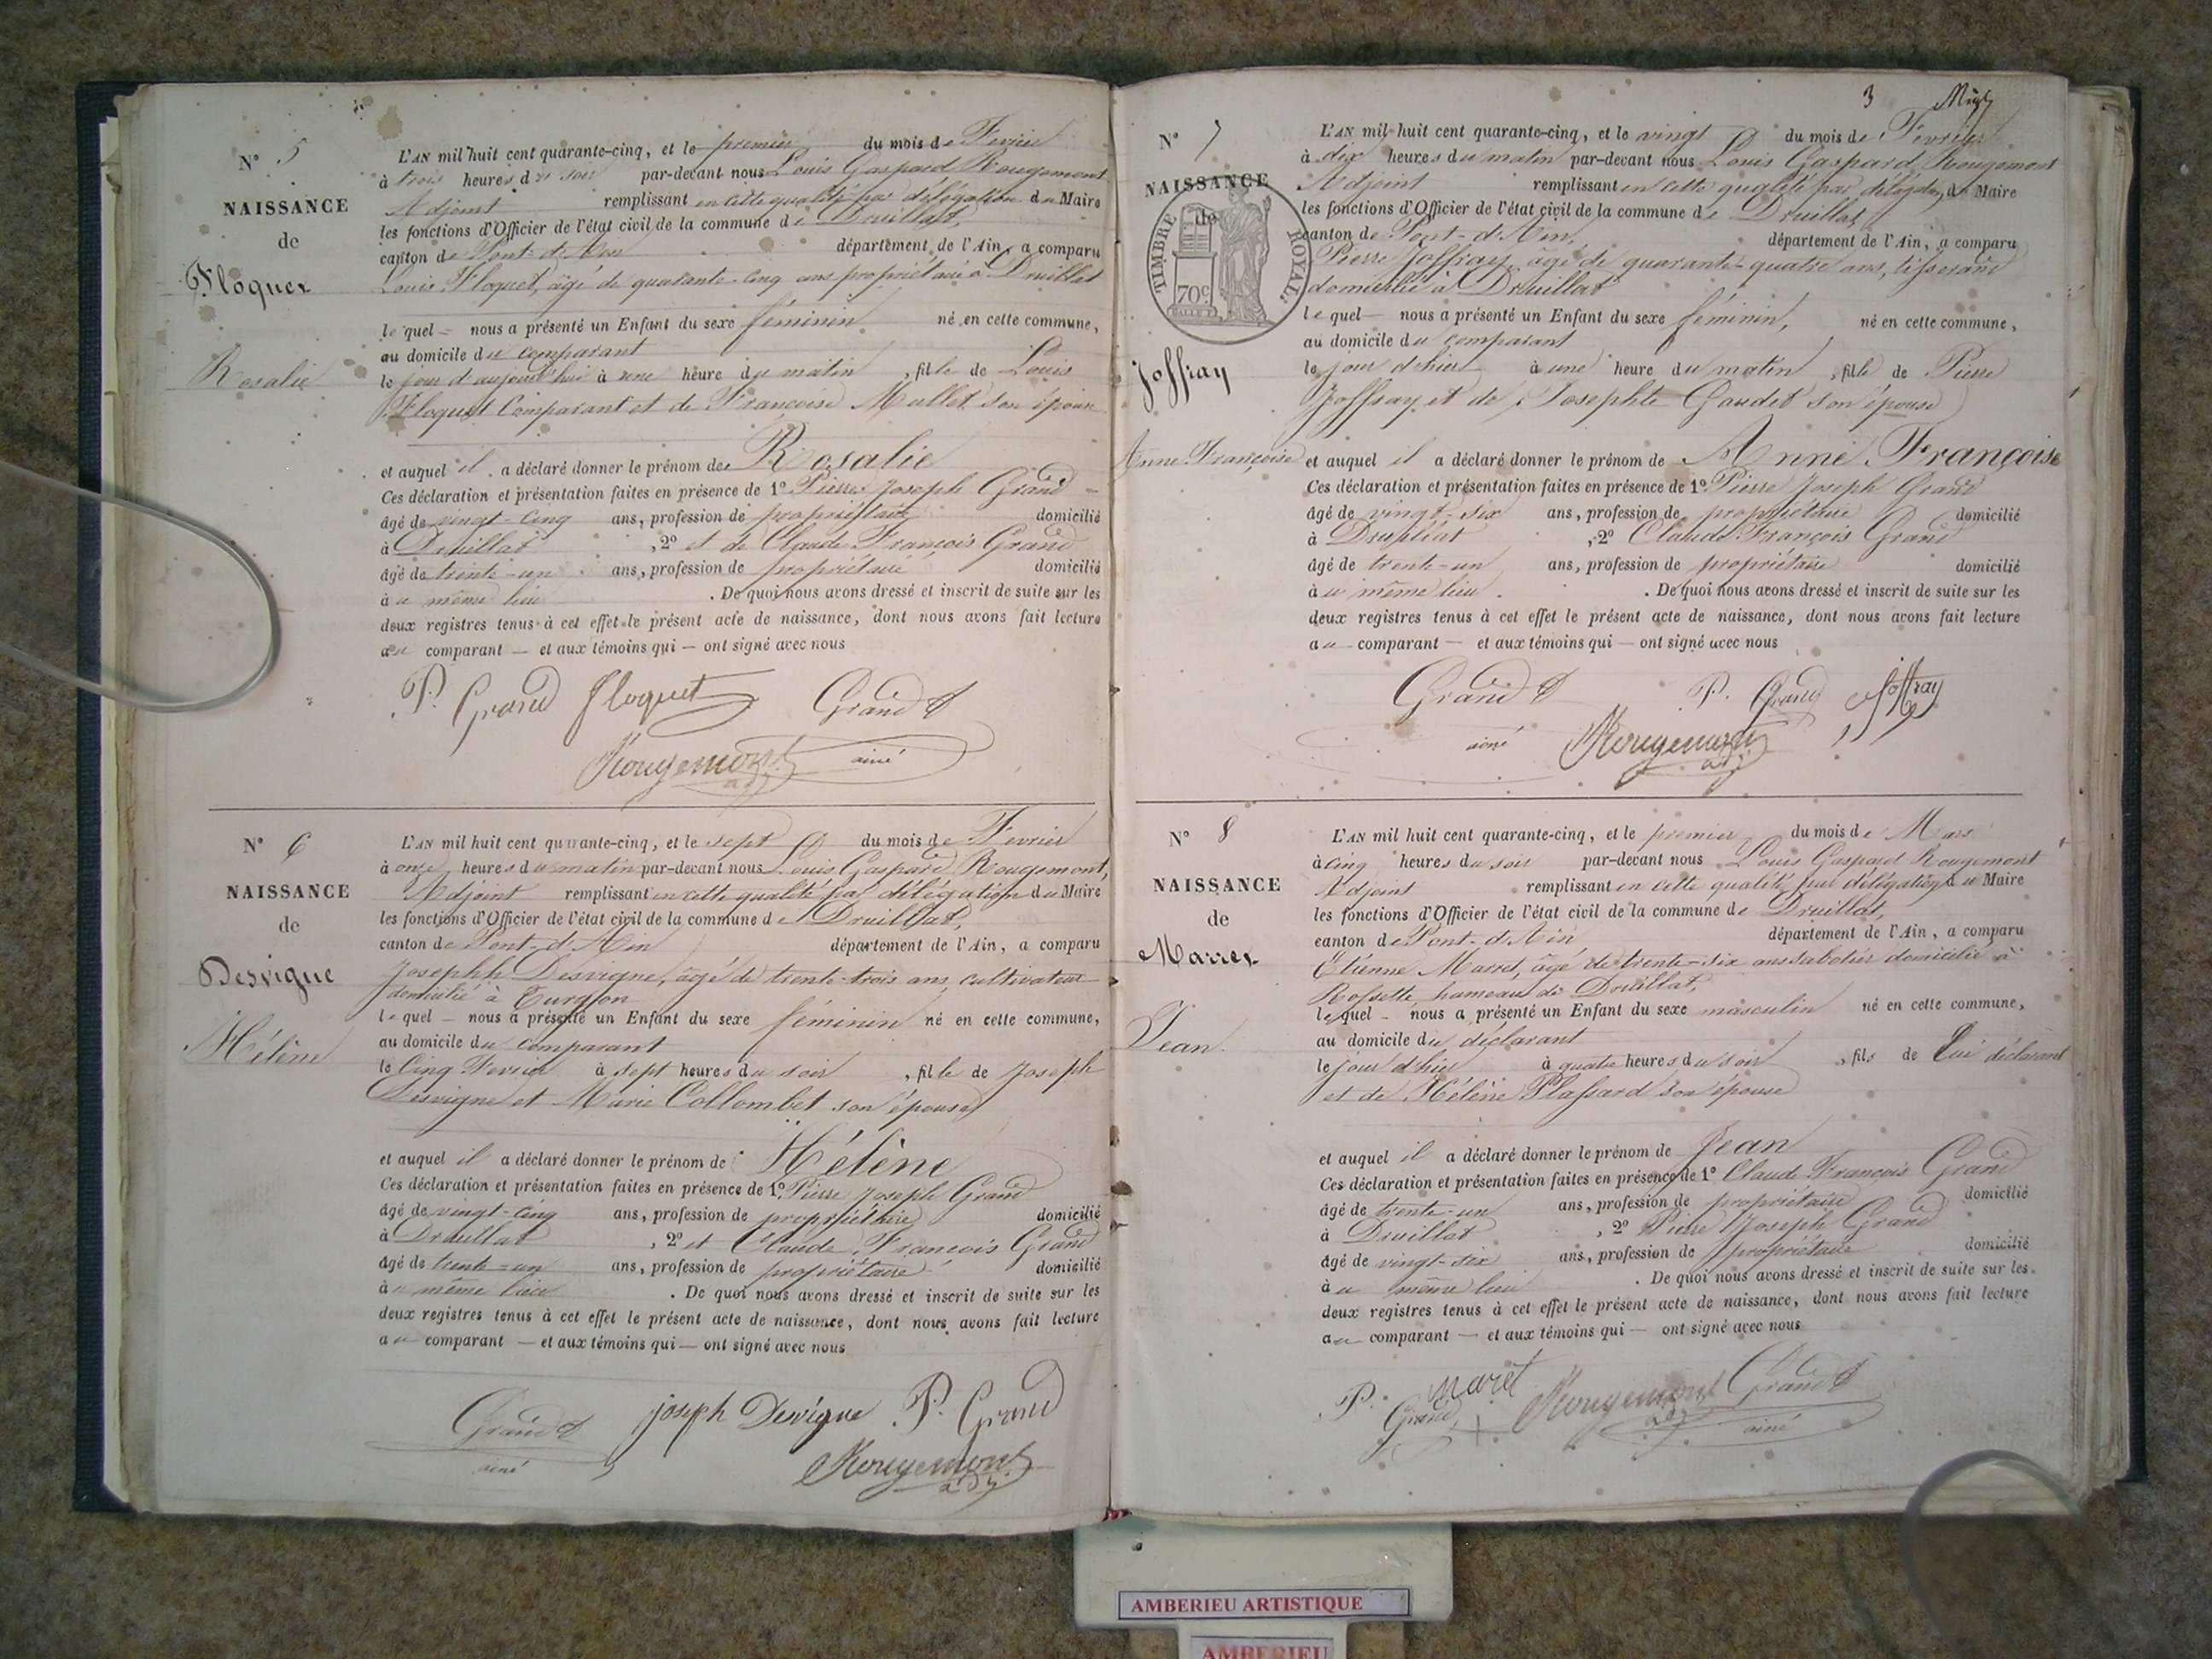 N° 5
NAISSANCE
de
Floquet
Rosalie
L'AN mil huit cent quarante-cinq, et le premier du mois de Fevrier
à trois heures du soir par-devant nous Louis Gaspard Rougemont
Adjoint remplissant en cette qualité par délégation du Maire
les fonctions d'Officier de l'état civil de la commune de Druillat,
canton de Pont-d'Ain département de l'Ain, a comparu
Louis Floquet, âgé de quarante-cinq ans propriétaire à Druillat
le quel nous a présenté un Enfant du sexe féminin né en cette commune,
au domicile du comparant
le jour d'aujourd'hui à une heure du matin, fille de Louis
Floquet Comparant et de Francoise Mallet son épouse
et auquel il a déclaré donner le prénom de Rosalie
Ces déclaration et présentation faites en présence de 1° Pierre Joseph Grand
âgé de vingt-cinq ans, profession de propriétaire domicilié
à Druillat, 2° et de Claude François Grand
âgé de trente-un ans, profession de propriétaire domicilié
à u même lieu. De quoi nous avons dressé et inscrit de suite sur les
deux registres tenus à cet effet le présent acte de naissance, dont nous avons fait lecture
au comparant — et aux témoins qui — ont signé avec nous
P. Grand floquet Grand
Rougemont ainé
adj
N° 6
NAISSANCE
de
Desvigne
Hélène
L'AN mil huit cent quarante-cinq, et le sept du mois de Fevrier
à onze heures du matin par-devant nous Louis Gaspard Rougemont,
Adjoint remplissant en cette qualité par délégation du Maire
les fonctions d'Officier de l'état civil de la commune de Druillat,
canton de Pont-d'Ain département de l'Ain, a comparu
Josephh Desvigne, âgé de trente-trois ans, cultivateur
domicilié à Turgon
le quel — nous a présenté un Enfant du sexe féminin né en cette commune,
au domicile du comparant
le Cinq Fevrier à sept heures du soir, fille de Joseph
Desvigne et Marie Collombet son épouse
et auquel il a déclaré donner le prénom de Hélène
Ces déclaration et présentation faites en présence de 1° Pierre Joseph Grand
âgé de vingt-cinq ans, profession de propriétaire domicilié
à Druillat, 2° et Claude François Grand
âgé de trente-un ans, profession de propriétaire domicilié
à u même lieu. De quoi nous avons dressé et inscrit de suite sur les
deux registres tenus à cet effet le présent acte de naissance, dont nous avons fait lecture
au comparant — et aux témoins qui — ont signé avec nous
Grand joseph Desvigne P. Grand
ainé Rougemont
adj
3
N° 7
NAISSANCE
de
TIMBRE ROYAL
70c
Joffray
Anne Françoise
L'AN mil huit cent quarante-cinq, et le vingt du mois de Fevrier
à dix heures du matin par-devant nous Louis Gaspard Rougemont
Adjoint remplissant en cette qualité par délégation du Maire
les fonctions d'Officier de l'état civil de la commune de Druillat,
canton de Pont-d'Ain, département de l'Ain, a comparu
Pierre Joffray, âgé de quarante-quatre ans, tisserand
domicilié à Druillat
le quel — nous a présenté un Enfant du sexe féminin, né en cette commune,
au domicile du comparant
le jour d'hier à une heure du matin, fille de Pierre
Joffray et de Josephte Gaudet son épouse
et auquel il a déclaré donner le prénom de Anne Françoise
Ces déclaration et présentation faites en présence de 1° Pierre Joseph Grand
âgé de vingt-six ans, profession de propriétaire domicilié
à Druillat, 2° Claude François Grand
âgé de trente-un ans, profession de propriétaire domicilié
à u même lieu. De quoi nous avons dressé et inscrit de suite sur les
deux registres tenus à cet effet le présent acte de naissance, dont nous avons fait lecture
au comparant — et aux témoins qui — ont signé avec nous
Grand P. Grand Joffray
ainé Rougemont
adj
N° 8
NAISSANCE
de
Marret
Jean
L'AN mil huit cent quarante-cinq, et le premier du mois de Mars
à cinq heures du soir par-devant nous Louis Gaspard Rougemont
Adjoint remplissant en cette qualité par délégation du Maire
les fonctions d'Officier de l'état civil de la commune de Druillat,
canton de Pont-d'Ain département de l'Ain, a comparu
Etienne Marret, âgé de trente-six ans sabotier domicilié à
Rossette, hameau de Druillat,
le quel — nous a présenté un Enfant du sexe masculin né en cette commune,
au domicile du déclarant
le jour d'hier à quatre heures du soir, fils de Lui déclarant
et de Hélène Plassard son épouse
et auquel il a déclaré donner le prénom de Jean
Ces déclaration et présentation faites en présence de 1° Claude François Grand
âgé de trente-un ans, profession de propriétaire domicilié
à Druillat, 2° Pierre Joseph Grand
âgé de vingt-six ans, profession de propriétaire domicilié
à u même lieu. De quoi nous avons dressé et inscrit de suite sur les
deux registres tenus à cet effet le présent acte de naissance, dont nous avons fait lecture
au comparant — et aux témoins qui — ont signé avec nous
P. Grand maret Rougemont Grand
adj ainé
AMBERIEU ARTISTIQUE
AMBERIEU